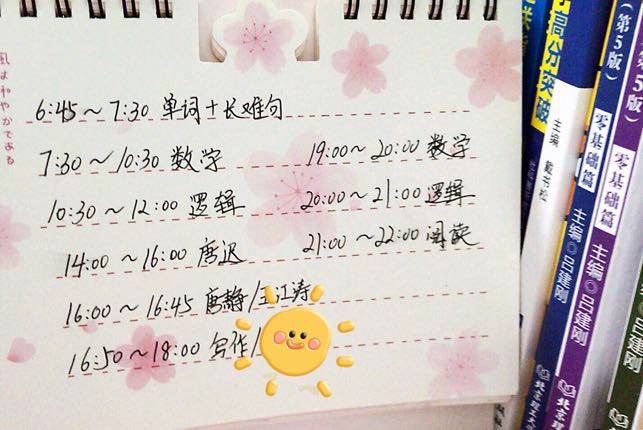 風はわやかである
6:45～7:30 单词＋长难句
7:30～10:30 数学
10:30～12:00 逻辑
14:00～16:00 唐迟
16:00～16:45 唐静/王江涛
16:50～18:00 写作/
19:00～20:00 数学
20:00～21:00 逻辑
21:00～22:00 阅读
高分突破
主编 戴书松
(第5版)
零基础篇
主编◎吕建刚
北京理工大
第5版)
零基础篇
主编◎吕建刚
北京理